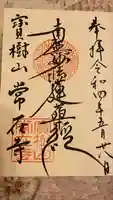 奉拝 令和四年五月廿八日
南無妙法蓮華経
寳樹山 常在寺